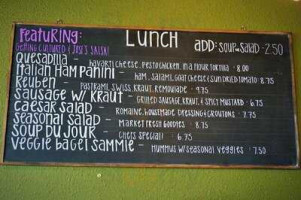 Featuring: LUNCH ADD: SOUP or SALAD - 2.50
GEMINI CULTURED & JOSE'S SALSA!
QUESADILLA - HAVARTI CHEESE, PESTO CHICKEN IN A FLOUR TORTILLA 8.00
ITALIAN HAM PANINI - HAM, SALAMI, GOAT CHEESE & SUN DRIED TOMATO 8.75
REUBEN - PASTRAMI, SWISS, KRAUT, REMOULADE 9.75
SAUSAGE W/ KRAUT - GRILLED SAUSAGE, KRAUT, & SPICY MUSTARD 6.75
CAESAR SALAD - ROMAINE, HOUSEMADE DRESSING & CROUTONS 7.75
SEASONAL SALAD - MARKET FRESH GOODIES 8.75
SOUP DU JOUR - CHEF'S SPECIAL! 6.75
VEGGIE BAGEL SAMMIE - HUMMUS W/ SEASONAL VEGGIES 7.50